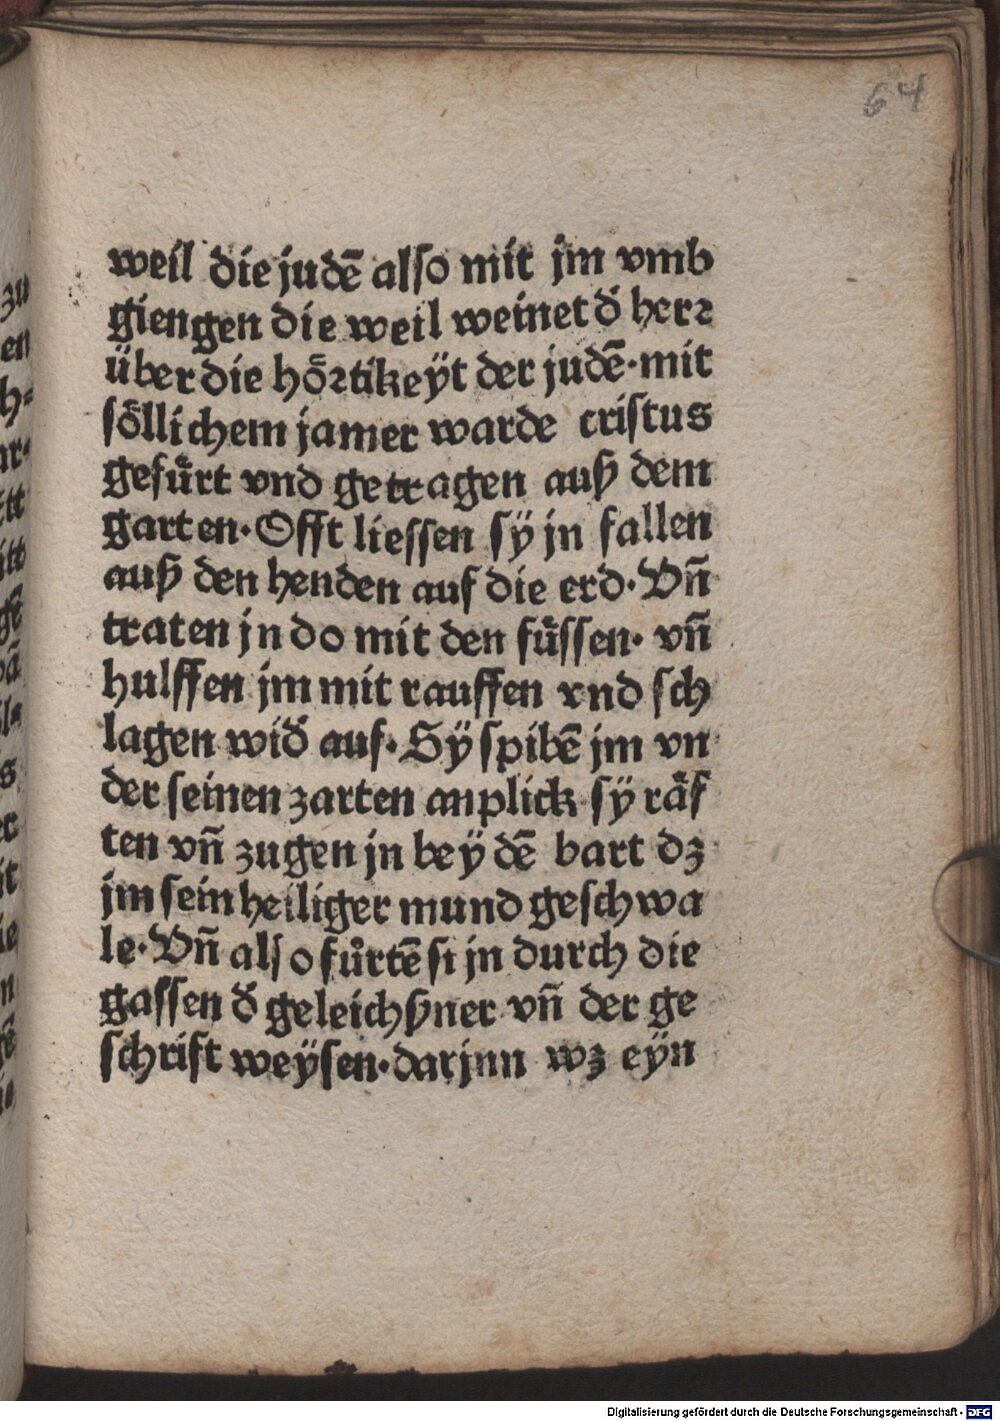 64
weil die judē also mit jm vmb
giengen die weil weinet d̄ herr
über die hoͤrtikeÿt der judē·mit
soͤllichem jamer warde cristus
gefuͤrt vnd getragen auß dem
garten·Offt liessen sÿ jn fallen
auß den henden auf die erd·Vn̄
traten jn do mit den fuͤssen· vn̄
hulffen jm mit rauffen vnd sch
lagen wid̄ auf·Sÿ spibē jm vn
der seinen zarten anplick sÿ raͤf
ten vn̄ zugen jn beÿ dē bart dz
jm sein heiliger mund geschwa
le·Vn̄ also fuͦrtē si jn durch die
gassen d̄ geleichßner vn̄ der ge
schrift weÿsen·darjnn wz eÿn
Digitalisierung gefördert durch die Deutsche Forschungsgemeinschaft - DFG